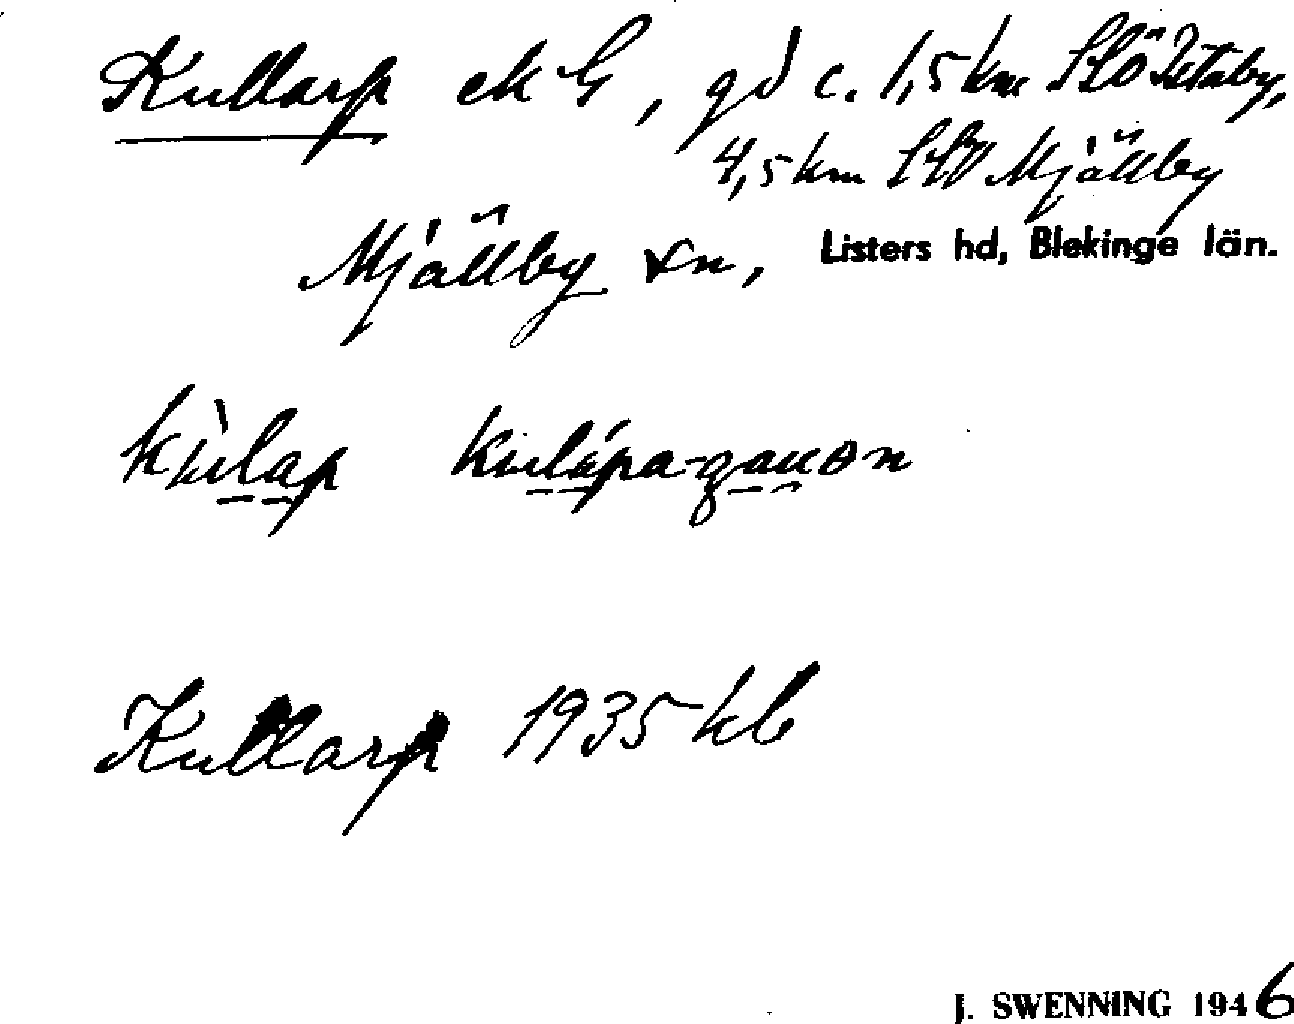 Kullarp ek G, gd c. 1,5 km SSÖ Istaby,
4,5 km SSV Mjällby
Mjällby sn, Listers hd, Blekinge län.
kùlap kulápa-gauon
Kullarp 1935 kb
J. SWENNING 1946